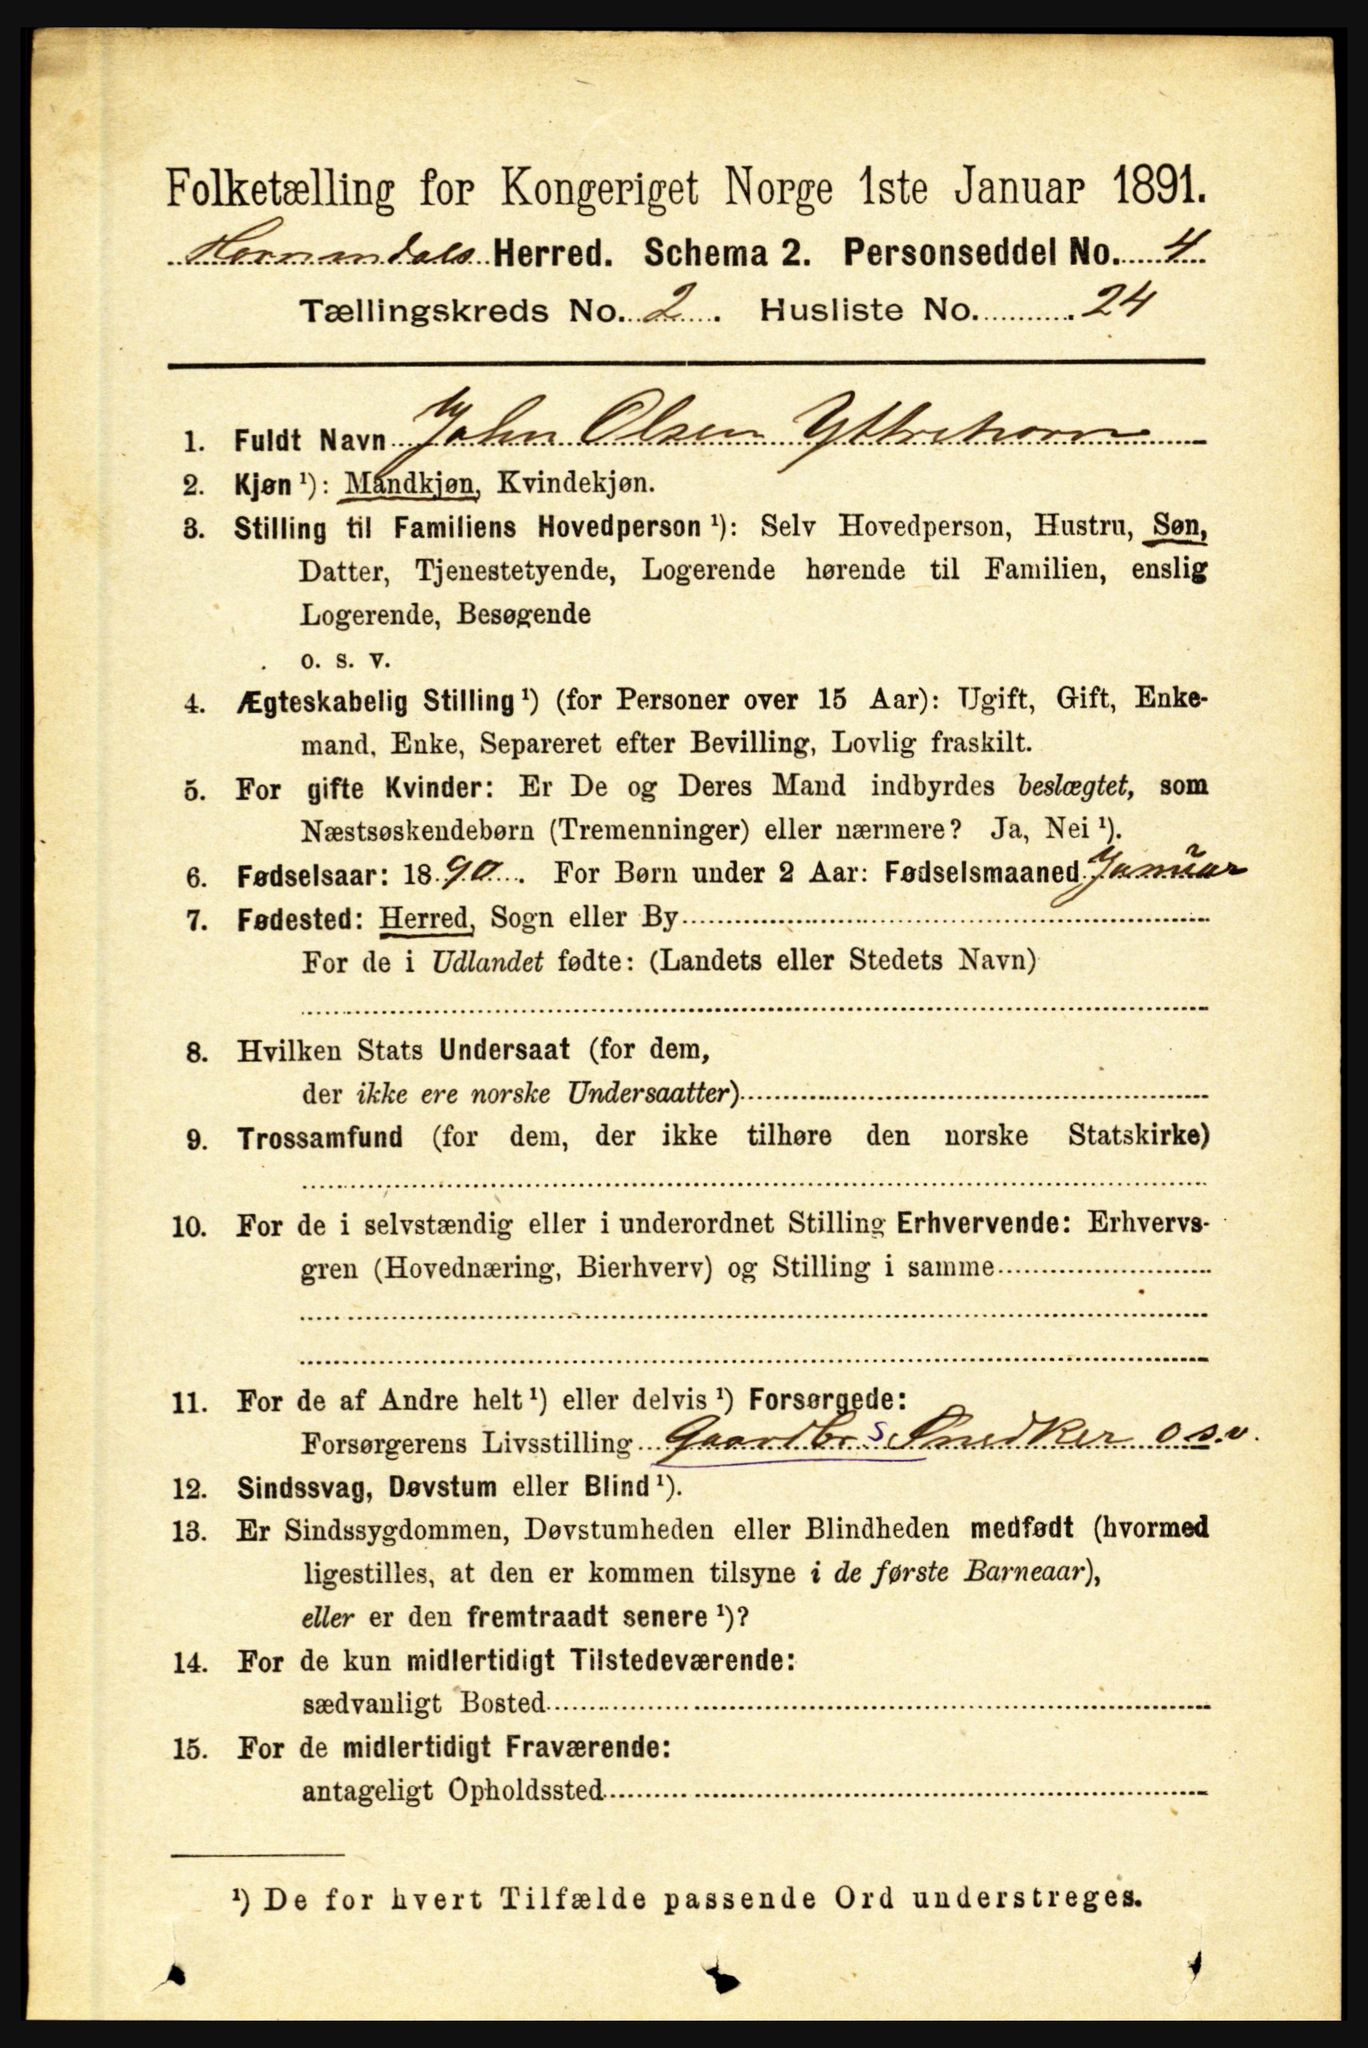 Folketælling for Kongeriget Norge 1ste Januar 1891.
Hornindals Herred. Schema 2. Personseddel No. 4
Tællingskreds No. 2. Husliste No. 24
1. Fuldt Navn John Olsen Yttrehorn
2. Kjøn ¹): Mandkjøn, Kvindekjøn.
3. Stilling til Familiens Hovedperson ¹): Selv Hovedperson, Hustru, Søn,
Datter, Tjenestetyende, Logerende hørende til Familien, enslig
Logerende, Besøgende
o. s. v.
4. Ægteskabelig Stilling ¹) (for Personer over 15 Aar): Ugift, Gift, Enke-
mand, Enke, Separeret efter Bevilling, Lovlig fraskilt.
5. For gifte Kvinder: Er De og Deres Mand indbyrdes beslægtet, som
Næstsøskendebørn (Tremenninger) eller nærmere? Ja, Nei ¹).
6. Fødselsaar: 1890. For Børn under 2 Aar: Fødselsmaaned Januar
7. Fødested: Herred, Sogn eller By
For de i Udlandet fødte: (Landets eller Stedets Navn)
8. Hvilken Stats Undersaat (for dem,
der ikke ere norske Undersaatter)
9. Trossamfund (for dem, der ikke tilhøre den norske Statskirke)
10. For de i selvstændig eller i underordnet Stilling Erhvervende: Erhvervs-
gren (Hovednæring, Bierhverv) og Stilling i samme
11. For de af Andre helt ¹) eller delvis ¹) Forsørgede:
Forsørgerens Livsstilling Gaardbr s Snedker o s. v.
12. Sindssvag, Døvstum eller Blind ¹).
13. Er Sindssygdommen, Døvstumheden eller Blindheden medfødt (hvormed
ligestilles, at den er kommen tilsyne i de første Barneaar),
eller er den fremtraadt senere ¹)?
14. For de kun midlertidigt Tilstedeværende:
sædvanligt Bosted
15. For de midlertidigt Fraværende:
antageligt Opholdssted
¹) De for hvert Tilfælde passende Ord understreges.